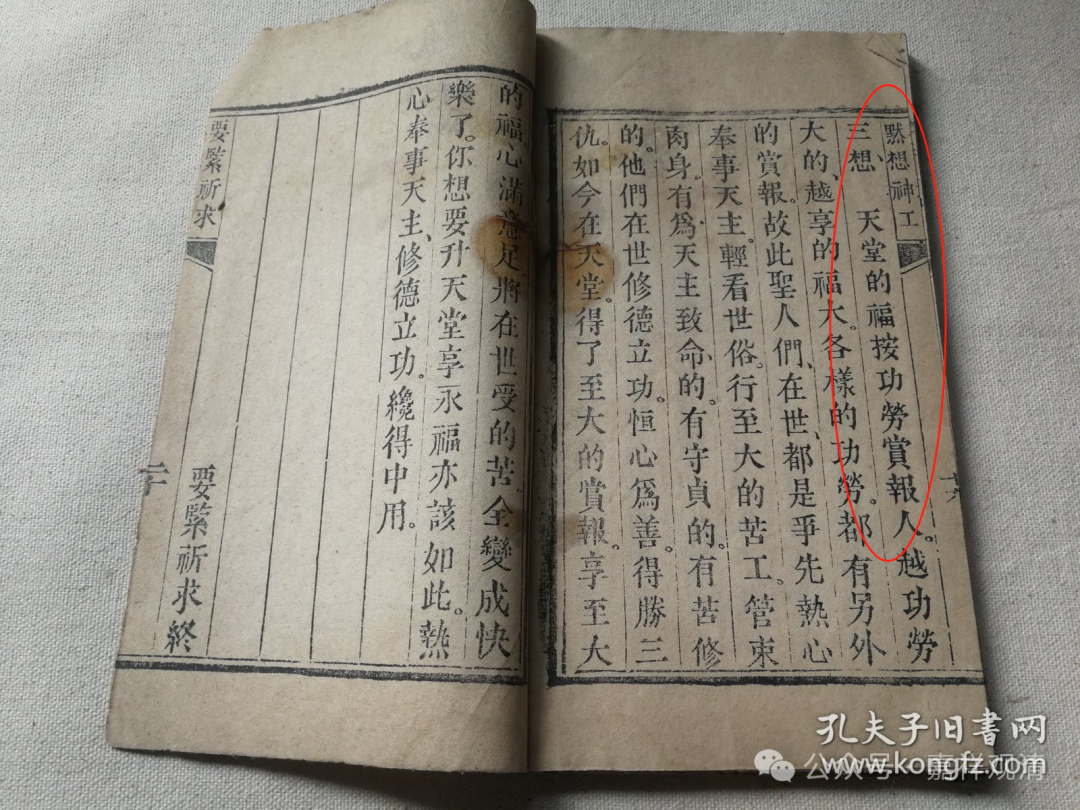 黙想神工
三想 天堂的福按功勞賞報人。越功勞
大的、越享的福大。各樣的功勞。都有另外
的賞報。故此聖人們、在世、都是爭先熱心
奉事天主。輕看世俗。行至大的苦工。管束
肉身。有爲天主致命的。有守貞的。有苦修
的。他們在世修德立功。恒心爲善。得勝三
仇。如今在天堂。得了至大的賞報。享至大
的福。心滿意足。將在世受的苦全變成快
樂了。你想要升天堂享永福亦該如此。熱
心奉事天主、修德立功。纔得中用。
要緊祈求終
要緊祈求
二十
孔夫子旧书网
www.kongfz.com
公众号